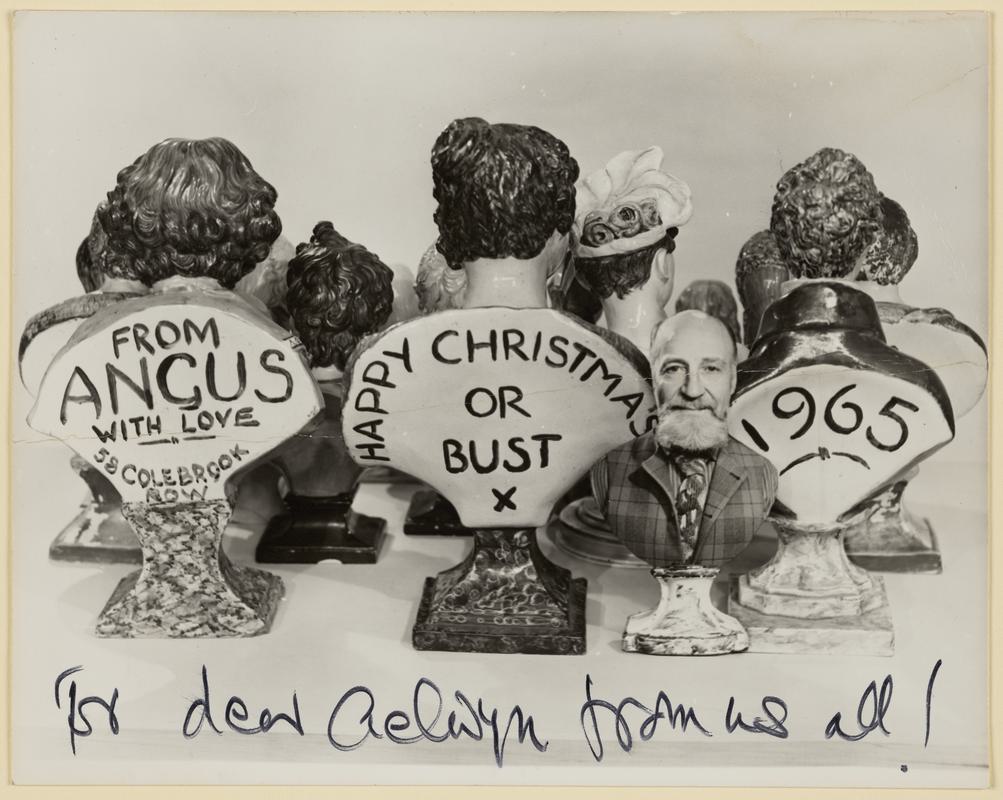 FROM
ANGUS
WITH LOVE
58 COLEBROOK
ROW
HAPPY CHRISTMAS
OR
BUST
X
1965
For dear Aelwyn from us all!